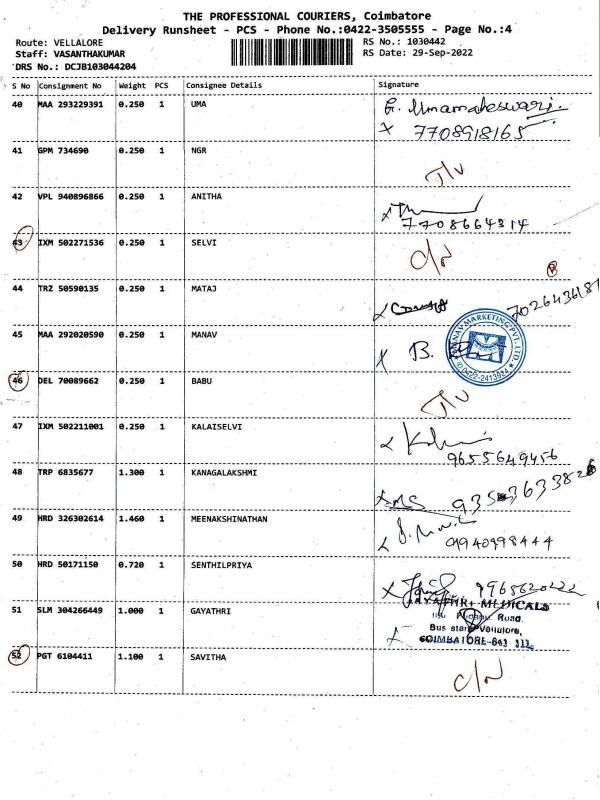 THE PROFESSIONAL COURIERS, Coimbatore
Delivery Runsheet - PCS - Phone No.:0422-3505555 - Page No.:4
Route: VELLALORE RS No.: 1030442
Staff: VASANTHAKUMAR RS Date: 29-Sep-2022
DRS No.: DCJB103044204
S No Consignment No Weight PCS Consignee Details Signature
40 MAA 293229391 0.250 1 UMA G. Umamaheswari
7708918165
41 GPM 734690 0.250 1 NGR
42 VPL 940896866 0.250 1 ANITHA
7708664314
43 IXM 502271536 0.250 1 SELVI
44 TRZ 50590135 0.250 1 MATAJ
45 MAA 292020590 0.250 1 MANAV B.
MARKETING PVT. LTD.
0422-2413934
46 DEL 70089662 0.250 1 BABU
47 IXM 502211001 0.250 1 KALAISELVI
9655649456
48 TRP 6835677 1.300 1 KANAGALAKSHMI
49 HRD 326302614 1.460 1 MEENAKSHINATHAN
50 HRD 50171150 0.720 1 SENTHILPRIYA
51 SLM 304266449 1.000 1 GAYATHRI MEDICALS
Road
Bus stand Vellalore,
COIMBATORE-641 111.
52 PGT 6104411 1.100 1 SAVITHA